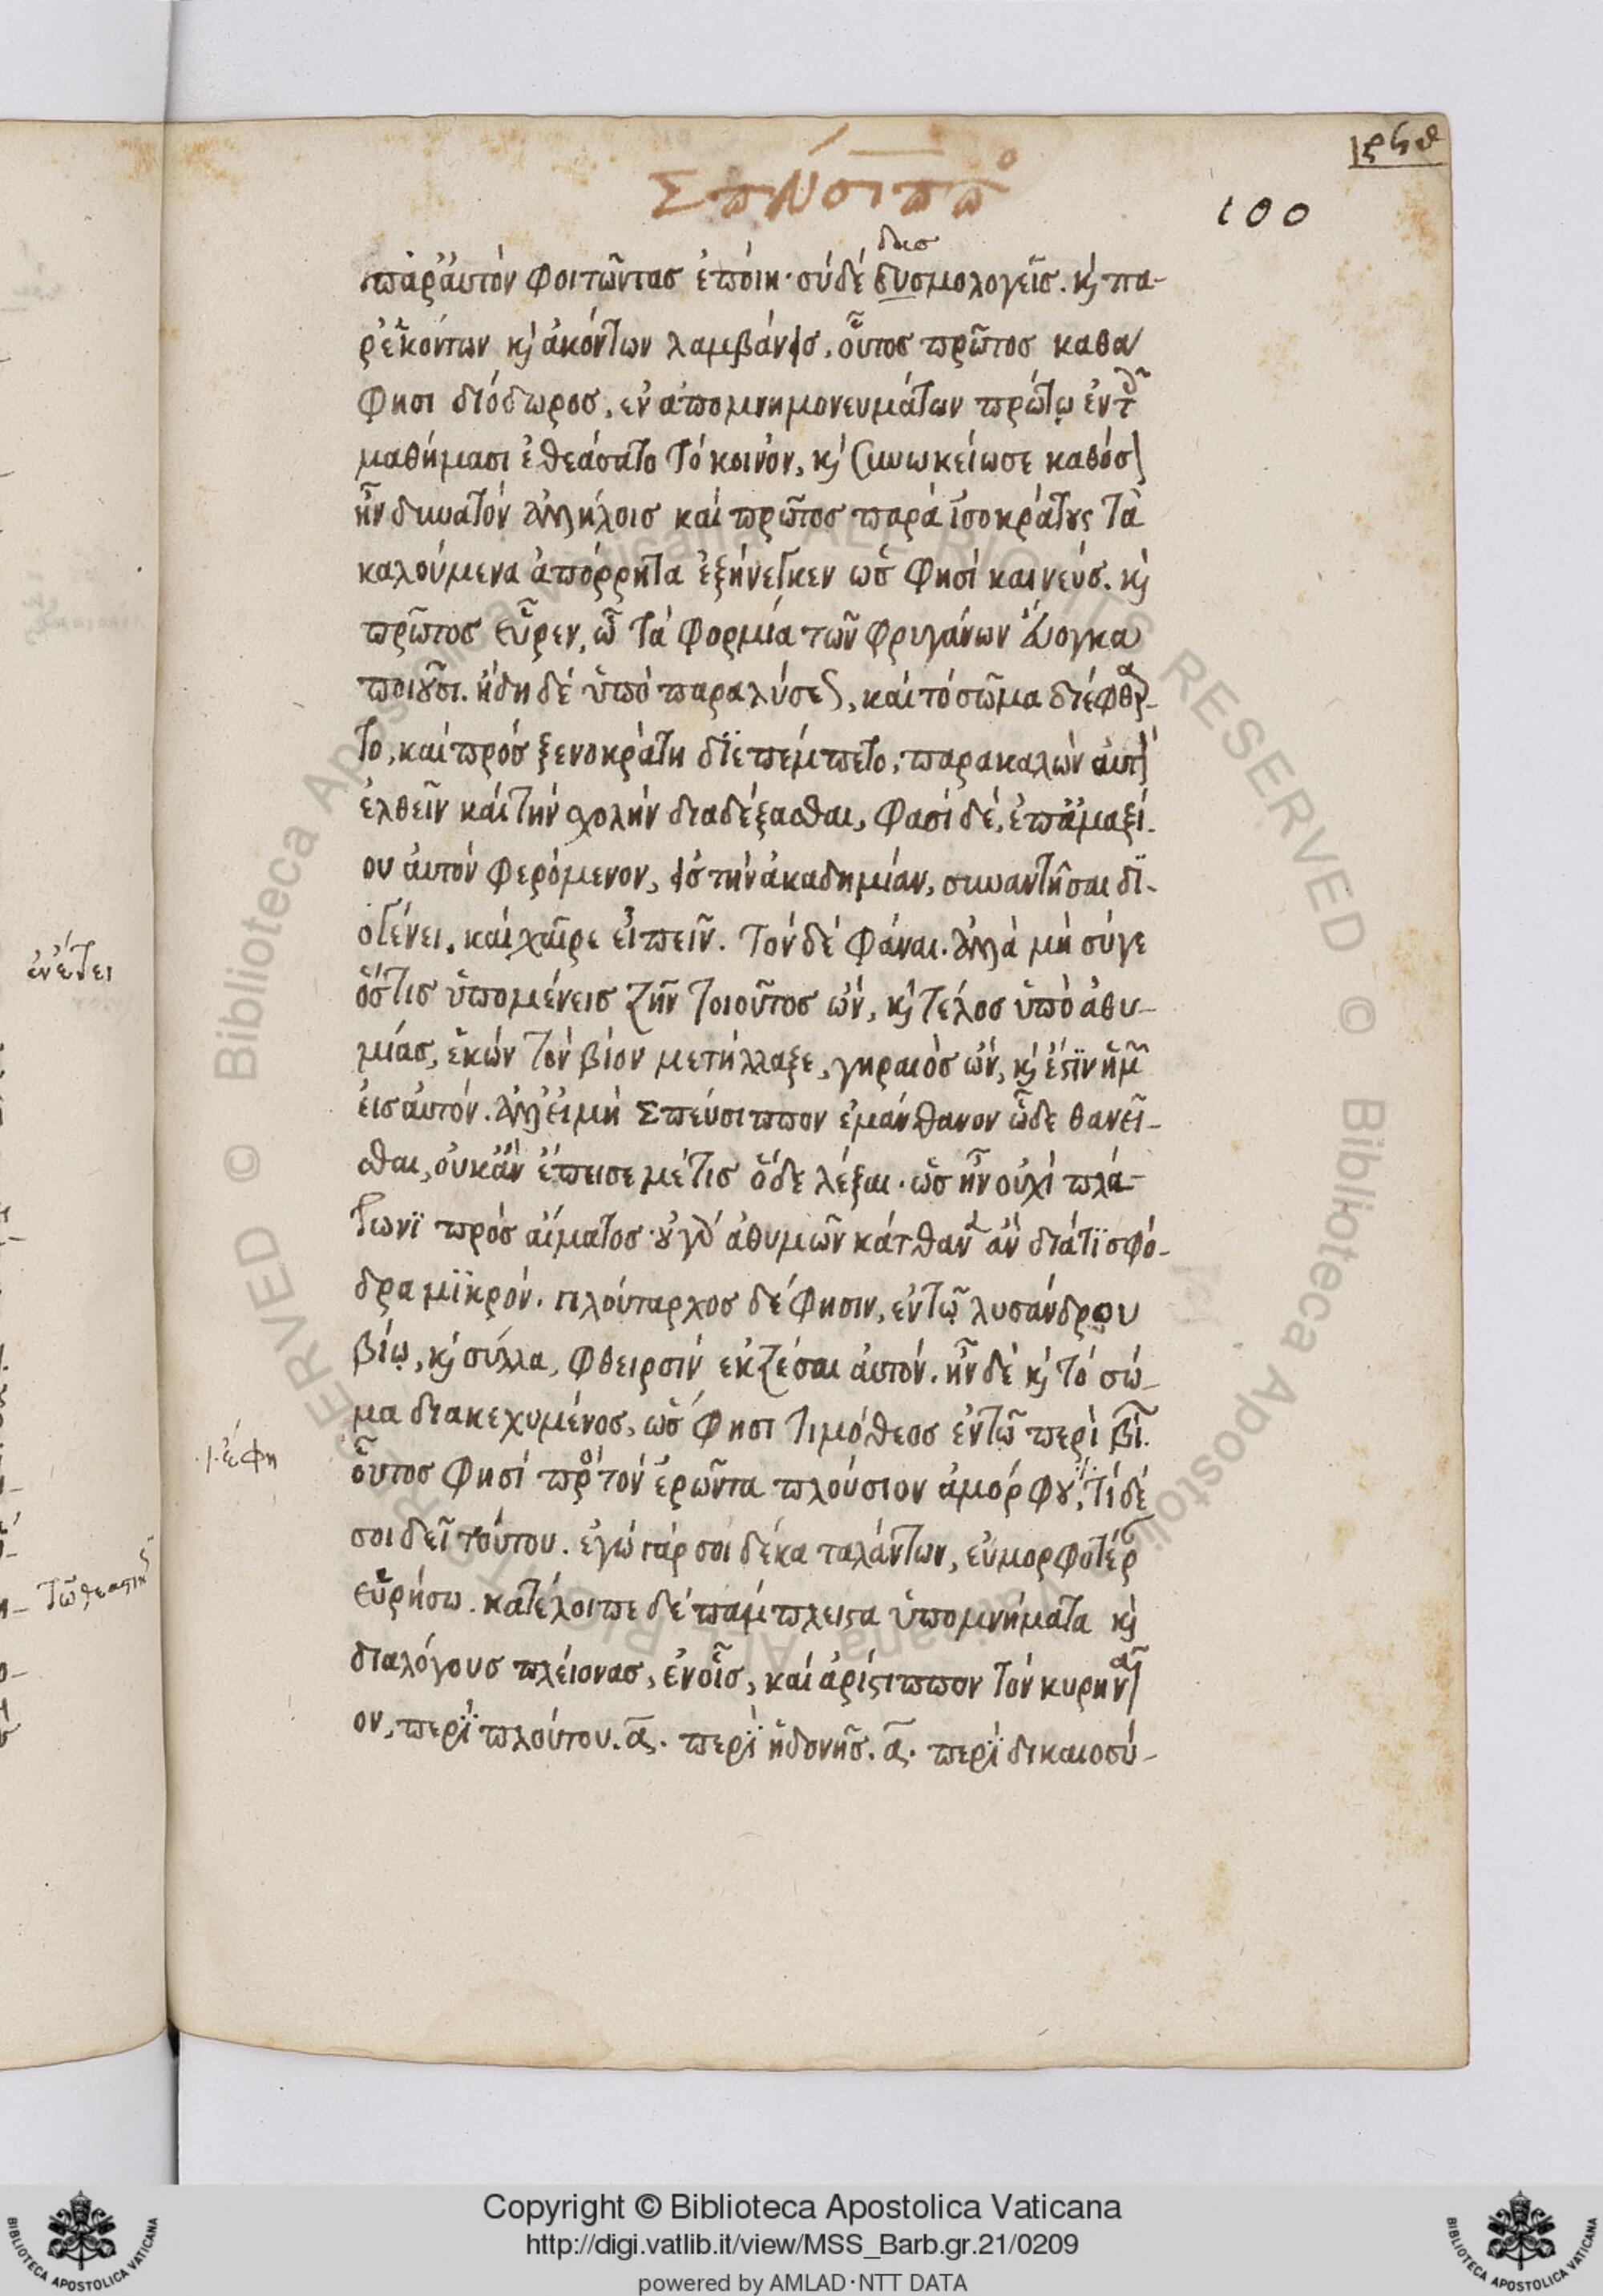 ρϟθ
Σπεύσιππος
100
δασ
παρ' αὐτὸν φοιτῶντασ ἐποίει· σὺ δὲ δυσμολογεῖσ. κ̀ πα-
ρ' ἑκόντων κ̀ ἀκόντων λαμβάνεισ. οὗτοσ πρῶτοσ καθά
φησι διόδωροσ, ἐν ἀπομνημονευμάτων πρώτῳ ἐν τοῖσ
μαθήμασι ἐθεάσατο τὸ κοινὸν, κ̀ συνωκείωσε καθόσον
ἦν δυνατὸν ἀλλήλοισ καὶ πρῶτοσ παρὰ ἰσοκράτους τὰ
καλούμενα ἀπόρρητα ἐξήνεγκεν ὥσ φησὶ καινεύσ. κ̀
πρῶτοσ εὗρεν, ᾧ τὰ φορμία τῶν φρυγάνων εὔογκα
ποιοῦσι. ἤδη δὲ ὑπὸ παραλύσεωσ, καὶ τὸ σῶμα διέφθαρ-
το, καὶ πρὸσ ξενοκράτη διεπέμπετο, παρακαλῶν αὐτὸν
ἐλθεῖν καὶ τὴν σχολὴν διαδέξασθαι, φασὶ δὲ, ἐπ' ἀμαξί-
ου αὐτὸν φερόμενον, εἰσ τὴν ἀκαδημίαν, συναντῆσαι δι-
ογένει. καὶ χαῖρε εἰπεῖν. τὸν δὲ φάναι. ἀλλὰ μὴ σύγε
ὅστισ ὑπομένεισ ζῆν τοιοῦτοσ ὢν, κ̀ τέλοσ ὑπὸ ἀθυ-
μίασ, ἑκὼν τὸν βίον μετήλλαξε, γηραιὸσ ὢν, κ̀ ἔστιν ἡμῶν
εἰσ αὐτόν. ἀλλ' εἰ μὴ Σπεύσιππον ἐμάνθανον ὧδε θανεῖ-
σθαι, οὐκ ἂν ἔπεισέ με τισ ὅδε λέξαι. ὡσ ἦν οὐχὶ πλά-
τωνι πρὸσ αἵματοσ· οὐ γὰρ ἀθυμῶν κάτθανεν ἂν διά τι σφό-
δρα μικρόν. πλούταρχοσ δέ φησιν, ἐν τῷ λυσάνδρου
βίῳ, κ̀ σύλλα, φθειρσὶν ἐκζέσαι αὐτόν. ἦν δὲ κ̀ τὸ σώ-
μα διακεχυμένοσ, ὥσ φησι τιμόθεοσ ἐν τῷ περὶ βί.
οὗτοσ φησὶ πρὸσ τὸν ἐρῶντα πλούσιον ἀμόρφου, τί δέ
σοι δεῖ τούτου. ἐγὼ γάρ σοι δέκα ταλάντων, εὐμορφοτέραν
εὑρήσω. κατέλοιπε δὲ πάμπλειστα ὑπομνήματα κ̀
διαλόγουσ πλείονασ, ἐν οἷσ, καὶ ἀρίστιππον τὸν κυρηναῖ
ον, περὶ πλούτου. α. περὶ ἡδονῆσ. α. περὶ δικαιοσύ-
ἐνέτει
·/· ἔφη
Copyright © Biblioteca Apostolica Vaticana
http://digi.vatlib.it/view/MSS_Barb.gr.21/0209
powered by AMLAD·NTT DATA